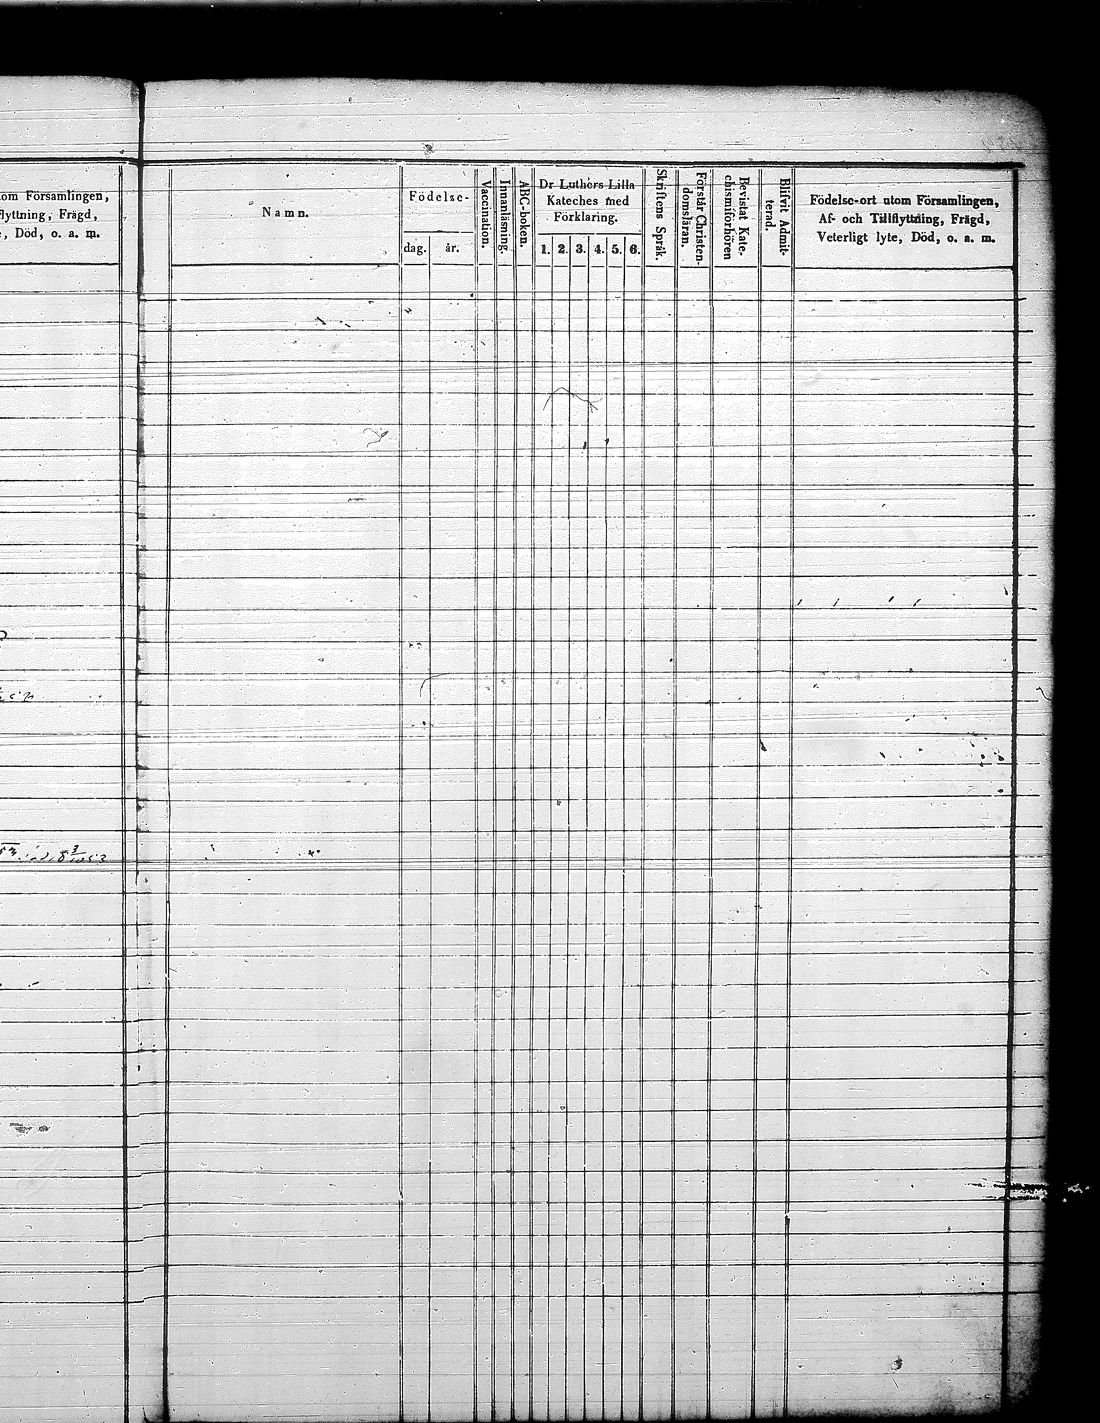 tom Församlingen,
flyttning, Frägd,
e, Död, o. a. m.
Namn.
Födelse-
dag. år.
Vaccination.
Innanläsning.
ABC-boken.
Dr Luthers Lilla
Kateches med
Förklaring.
1. 2. 3. 4. 5. 6.
Skriftens Språk.
Förstår Christen-
domsläran.
Bevistat Kate-
chismiförhören
Blifvit Admit-
terad.
Födelse-ort utom Församlingen,
Af- och Tillflyttning, Frägd,
Veterligt lyte, Död, o. a. m.